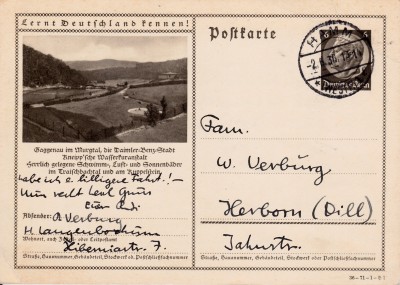 Lernt Deutschland kennen!
Postkarte
HAMM
(WESTF)
Gaggenau im Murgtal, die Daimler-Benz-Stadt
Kneipp'sche Wasserkuranstalt
Herrlich gelegene Schwimm-, Luft- und Sonnenbäder
im Traischbachtal und am Kuppelstein
habe ich e. billigere Fahrt.! –
Nun recht herzl. Gruss
Absender: A. Verburg
H. Langenbochum
Wohnort, auch Zustell- oder Leitpostamt
Hiberniastr. 7.
Straße, Hausnummer, Gebäudeteil, Stockwerk od. Postschließfachnummer
Fam.
W. Verburg
Herborn (Dill)
Jahnstr.
Straße, Hausnummer, Gebäudeteil, Stockwerk od. Postschließfachnummer